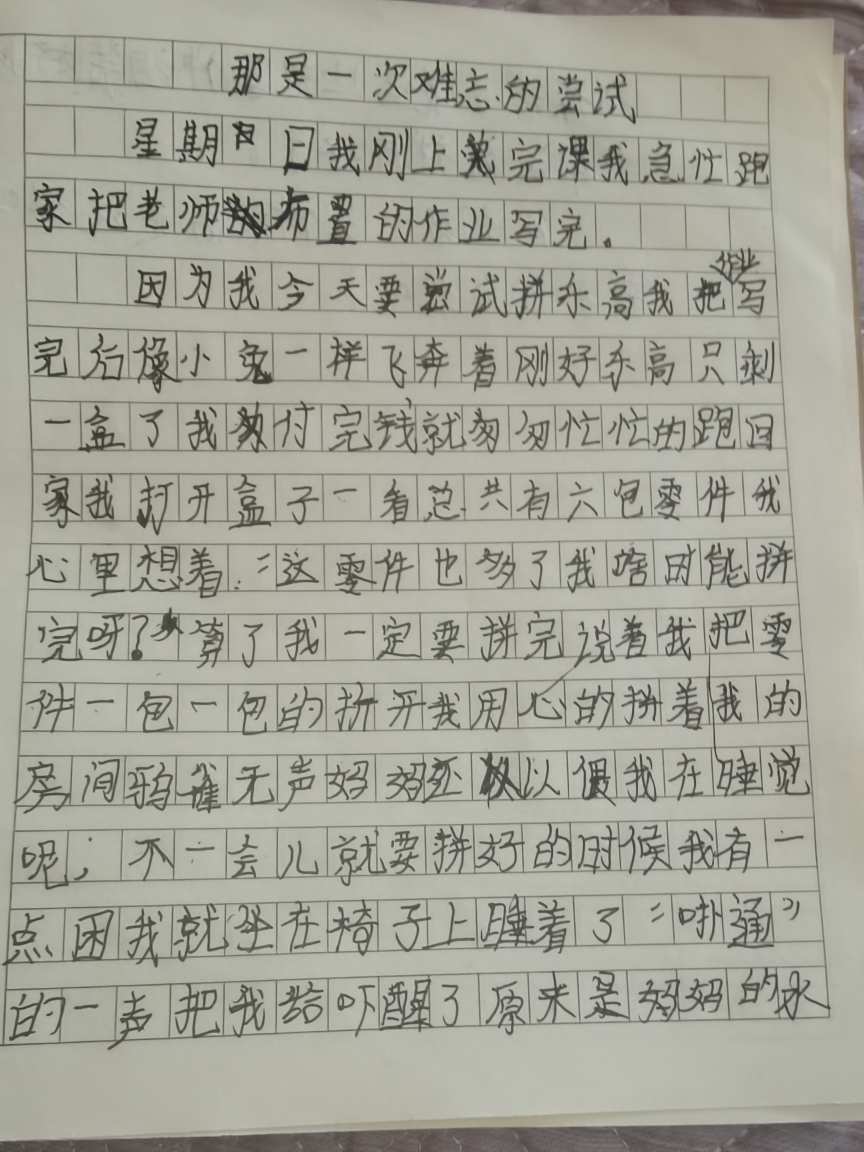 那是一次难忘的尝试
星期日我刚上完课我急忙跑
家把老师布置的作业写完。
因为我今天要尝试拼乐高我把作业写
完后像小兔一样飞奔着刚好乐高只剩
一盒了我付完钱就匆匆忙忙的跑回
家我打开盒子一看总共有六包零件我
心里想着:“这零件也多了我啥时能拼
完呀?算了我一定要拼完说着我把零
件一包一包的折开我用心的拼着我的
房间鸦雀无声妈妈还以偎我在睡觉
呢;不一会儿就要拼好的时候我有一
点困我就坐在椅子上睡着了“啉通”
的一声把我给吓醒了原来是妈妈的水